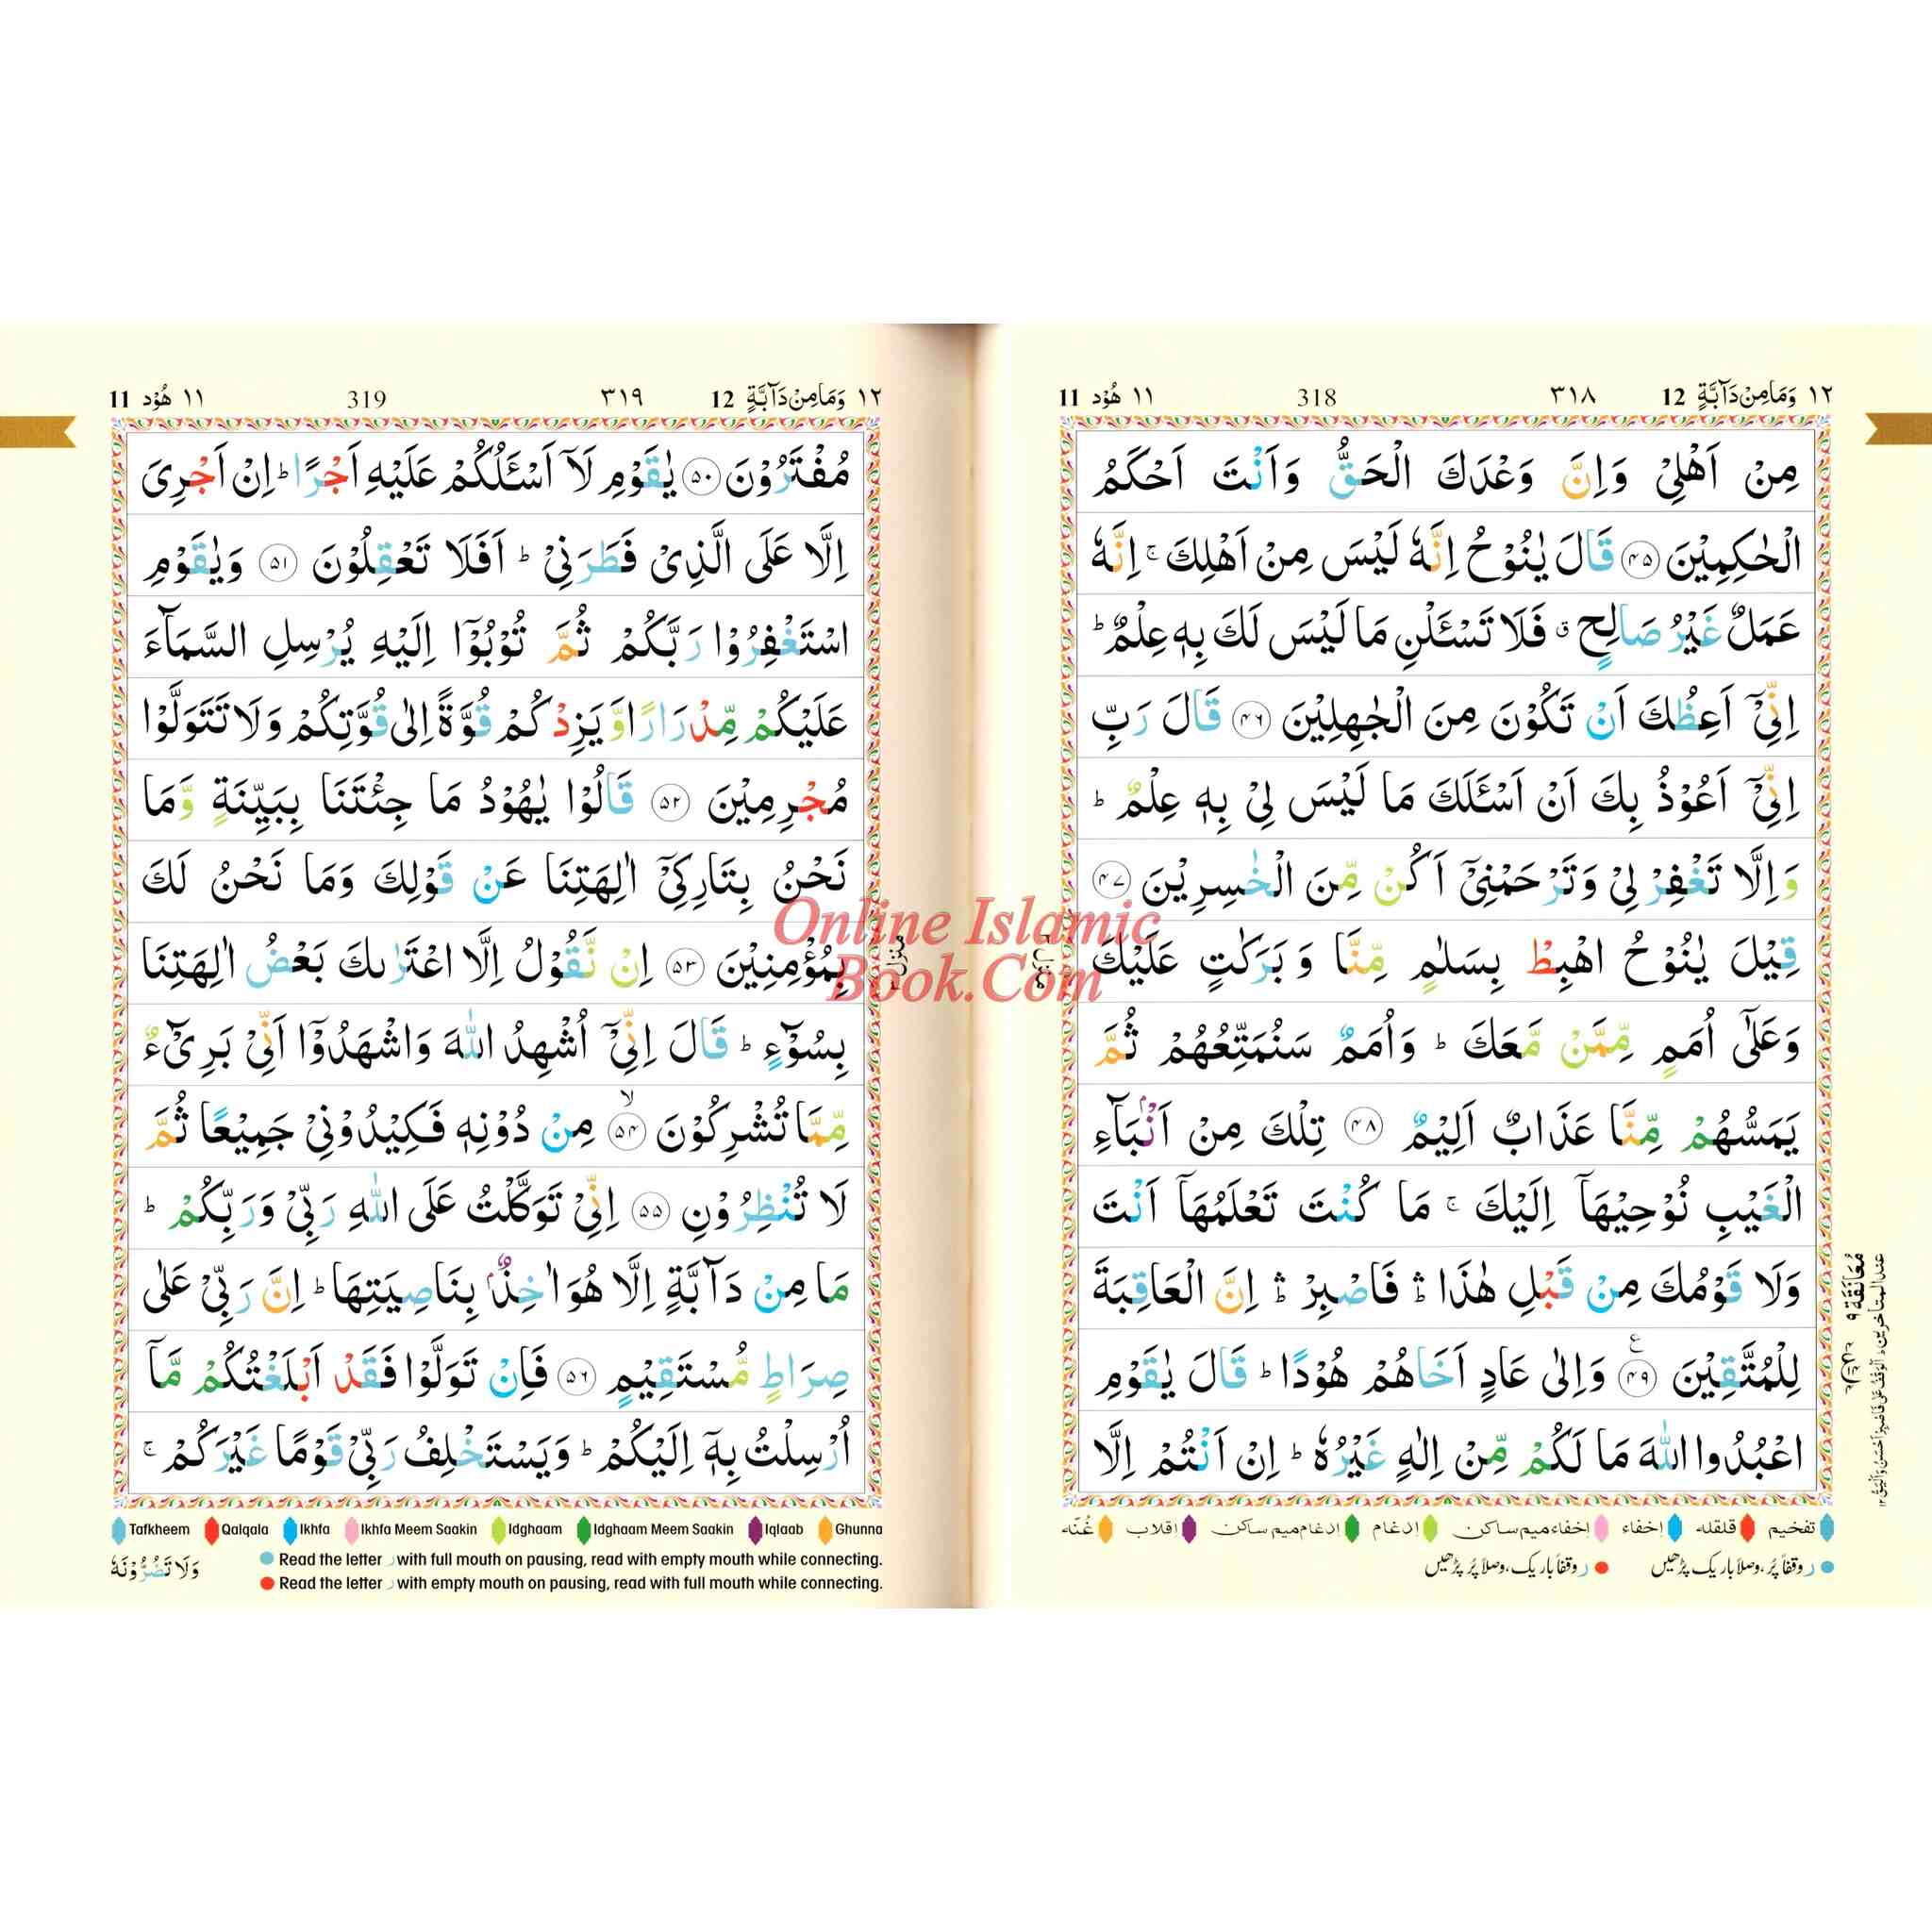 ١٢ وَمَا مِنْ دَآبَّةٍ 12 ٣١٨ 318 ١١ هُوْد 11
مِنْ اَهْلِيْ وَاِنَّ وَعْدَكَ الْحَقُّ وَاَنْتَ اَحْكَمُ
الْحٰكِمِيْنَ ۴۵ قَالَ يٰنُوْحُ اِنَّهٗ لَيْسَ مِنْ اَهْلِكَ ۚ اِنَّهٗ
عَمَلٌ غَيْرُ صَالِحٍ ۖ فَلَا تَسْـَٔلْنِ مَا لَيْسَ لَكَ بِهٖ عِلْمٌ ؕ
اِنِّيْٓ اَعِظُكَ اَنْ تَكُوْنَ مِنَ الْجٰهِلِيْنَ ۴۶ قَالَ رَبِّ
اِنِّيْٓ اَعُوْذُ بِكَ اَنْ اَسْـَٔلَكَ مَا لَيْسَ لِيْ بِهٖ عِلْمٌ ؕ
وَاِلَّا تَغْفِرْ لِيْ وَتَرْحَمْنِيْٓ اَكُنْ مِّنَ الْخٰسِرِيْنَ ۴۷
قِيْلَ يٰنُوْحُ اهْبِطْ بِسَلٰمٍ مِّنَّا وَبَرَكٰتٍ عَلَيْكَ
وَعَلٰٓى اُمَمٍ مِّمَّنْ مَّعَكَ ؕ وَاُمَمٌ سَنُمَتِّعُهُمْ ثُمَّ
يَمَسُّهُمْ مِّنَّا عَذَابٌ اَلِيْمٌ ۴۸ تِلْكَ مِنْ اَنْۢبَآءِ
الْغَيْبِ نُوْحِيْهَآ اِلَيْكَ ۚ مَا كُنْتَ تَعْلَمُهَآ اَنْتَ
وَلَا قَوْمُكَ مِنْ قَبْلِ هٰذَا ؕۛ فَاصْبِرْ ؕۛ اِنَّ الْعَاقِبَةَ
لِلْمُتَّقِيْنَ ۴۹ وَاِلٰى عَادٍ اَخَاهُمْ هُوْدًا ؕ قَالَ يٰقَوْمِ
اعْبُدُوا اللّٰهَ مَا لَكُمْ مِّنْ اِلٰهٍ غَيْرُهٗ ؕ اِنْ اَنْتُمْ اِلَّا
مُعَانَقَة ٩
تفخیم قلقله إخفاء إخفاء میم ساکن إدغام إدغام میم ساکن إقلاب غُنّه
ر وقفاً پُر، وصلاً باریک پڑھیں ر وقفاً باریک، وصلاً پُر پڑھیں
١٢ وَمَا مِنْ دَآبَّةٍ 12 ٣١٩ 319 ١١ هُوْد 11
مُفْتَرُوْنَ ۵۰ يٰقَوْمِ لَآ اَسْـَٔلُكُمْ عَلَيْهِ اَجْرًا ؕ اِنْ اَجْرِيَ
اِلَّا عَلَى الَّذِيْ فَطَرَنِيْ ؕ اَفَلَا تَعْقِلُوْنَ ۵۱ وَيٰقَوْمِ
اسْتَغْفِرُوْا رَبَّكُمْ ثُمَّ تُوْبُوْٓا اِلَيْهِ يُرْسِلِ السَّمَآءَ
عَلَيْكُمْ مِّدْرَارًا وَّيَزِدْكُمْ قُوَّةً اِلٰى قُوَّتِكُمْ وَلَا تَتَوَلَّوْا
مُجْرِمِيْنَ ۵۲ قَالُوْا يٰهُوْدُ مَا جِئْتَنَا بِبَيِّنَةٍ وَّمَا
نَحْنُ بِتَارِكِيْٓ اٰلِهَتِنَا عَنْ قَوْلِكَ وَمَا نَحْنُ لَكَ
بِمُؤْمِنِيْنَ ۵۳ اِنْ نَّقُوْلُ اِلَّا اعْتَرٰىكَ بَعْضُ اٰلِهَتِنَا
بِسُوْٓءٍ ؕ قَالَ اِنِّيْٓ اُشْهِدُ اللّٰهَ وَاشْهَدُوْٓا اَنِّيْ بَرِيْٓءٌ
مِّمَّا تُشْرِكُوْنَ ۵۴ۙ مِنْ دُوْنِهٖ فَكِيْدُوْنِيْ جَمِيْعًا ثُمَّ
لَا تُنْظِرُوْنِ ۵۵ اِنِّيْ تَوَكَّلْتُ عَلَى اللّٰهِ رَبِّيْ وَرَبِّكُمْ ؕ
مَا مِنْ دَآبَّةٍ اِلَّا هُوَ اٰخِذٌۢ بِنَاصِيَتِهَا ؕ اِنَّ رَبِّيْ عَلٰى
صِرَاطٍ مُّسْتَقِيْمٍ ۵۶ فَاِنْ تَوَلَّوْا فَقَدْ اَبْلَغْتُكُمْ مَّآ
اُرْسِلْتُ بِهٖٓ اِلَيْكُمْ ؕ وَيَسْتَخْلِفُ رَبِّيْ قَوْمًا غَيْرَكُمْ ۚ
Tafkheem Qalqala Ikhfa Ikhfa Meem Saakin Idghaam Idghaam Meem Saakin Iqlaab Ghunna
Read the letter ر with full mouth on pausing, read with empty mouth while connecting.
Read the letter ر with empty mouth on pausing, read with full mouth while connecting.
وَلَا تَضُرُّوْنَهٗ
Online Islamic
Book.Com